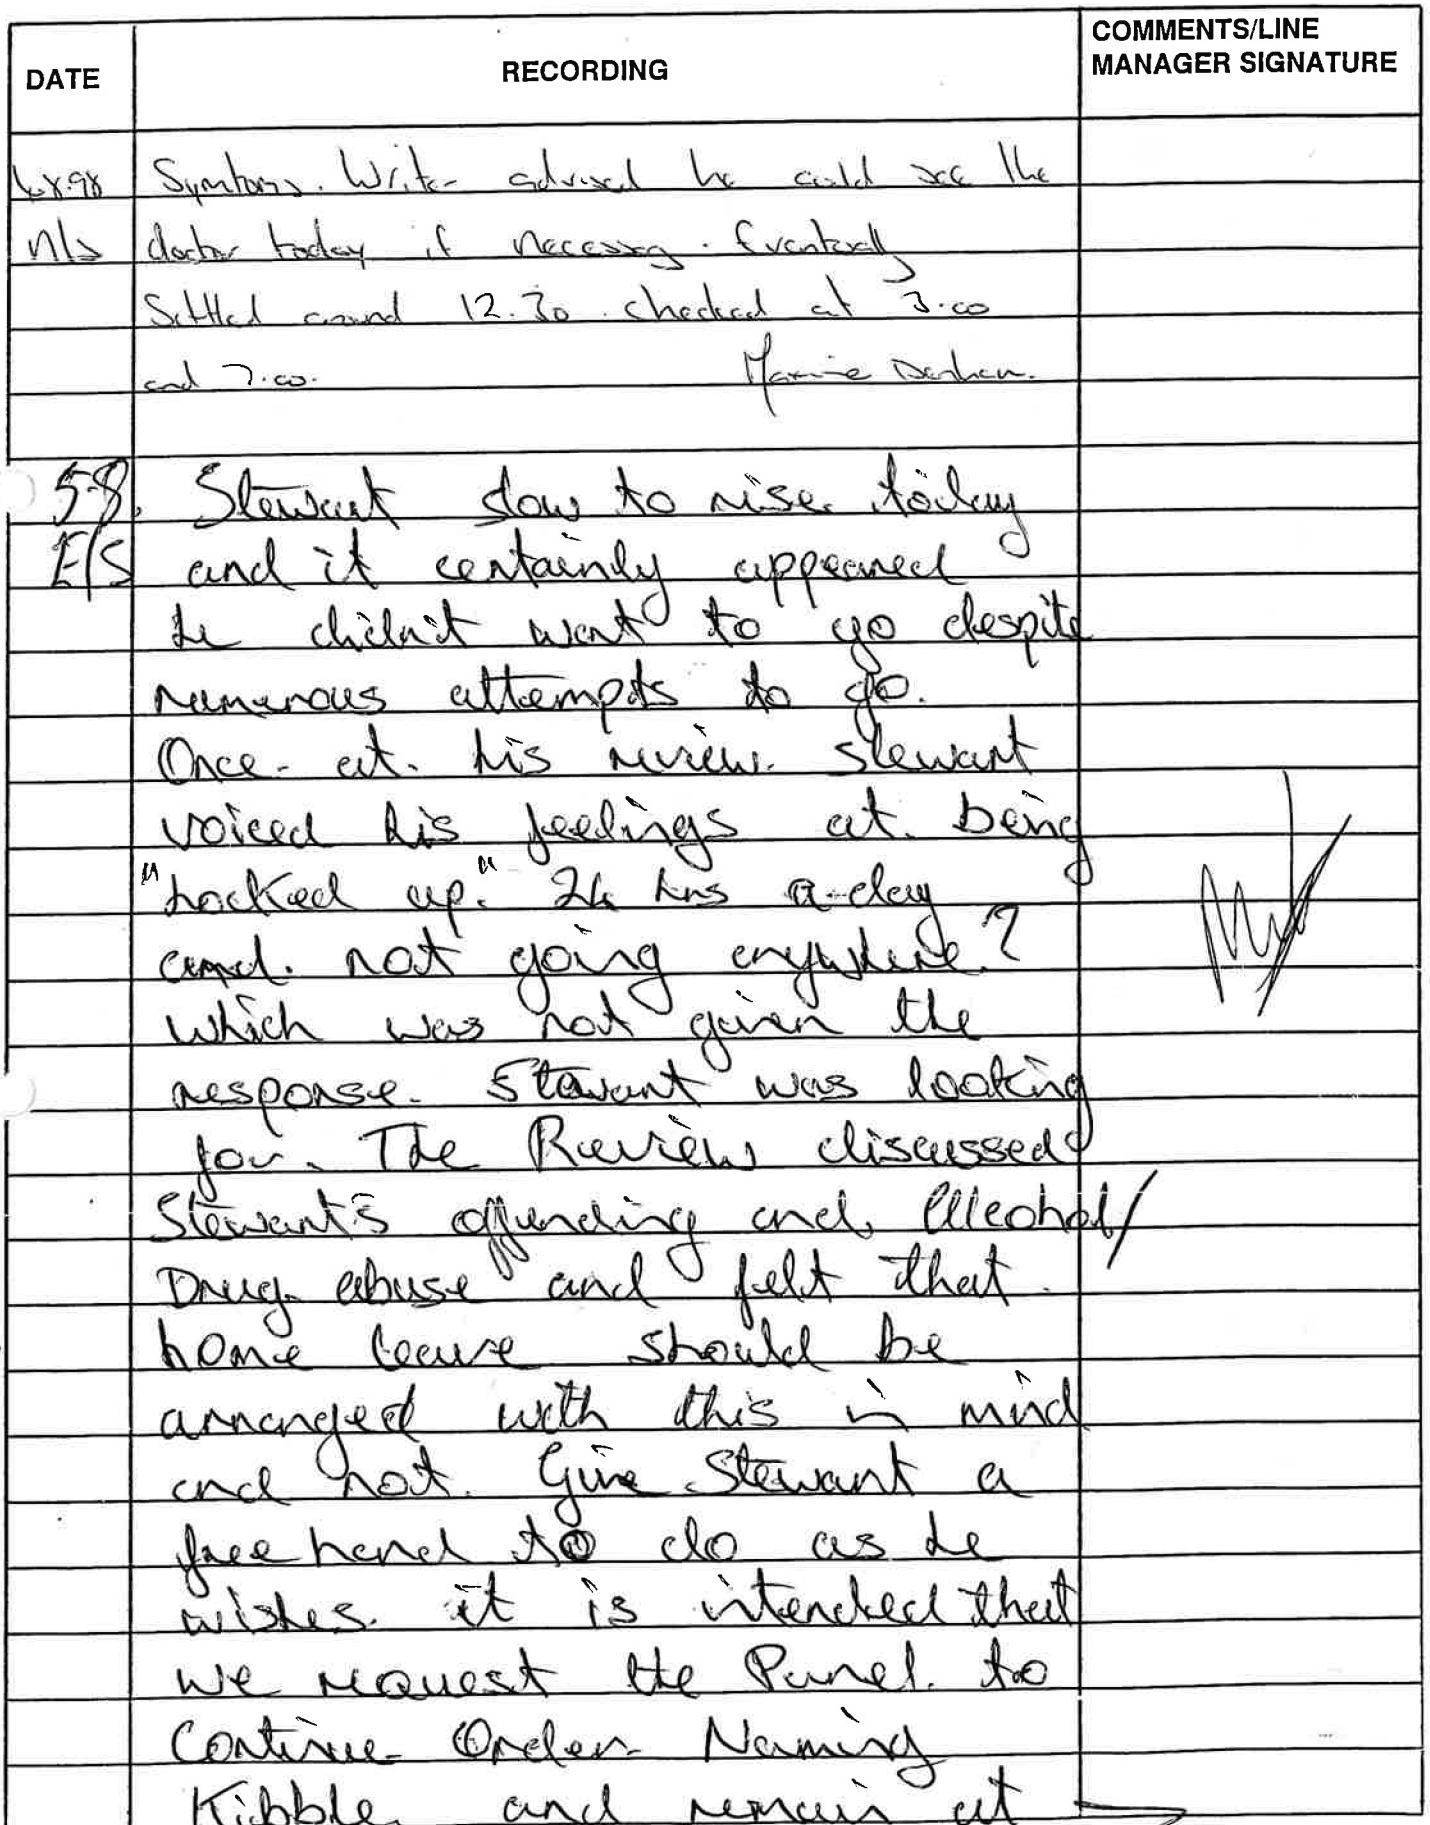 DATE
RECORDING
COMMENTS/LINE
MANAGER SIGNATURE
4.8.98 Symtoms. Writer advised he could see the
N/S doctor today if necessary. Eventually
Settled around 12.30. checked at 3.00
and 7.00. Maxine
5-8. Stewart slow to rise today
E/S and it certainly appeared
he didn't want to go despite
numerous attempts to go.
Once at his review Stewart
voiced his feelings at being
"Locked up" 24 hrs a-day
and not going anywhere?
which was not given the
response Stewart was looking
for. The Review discussed
Stewart's offending and Alcohol/
Drug abuse and felt that
home leave should be
arranged with this in mind
and not Give Stewart a
free hand to do as he
wishes. it is intended that
we request the Panel to
Continue Order Naming
Kibble and remain at